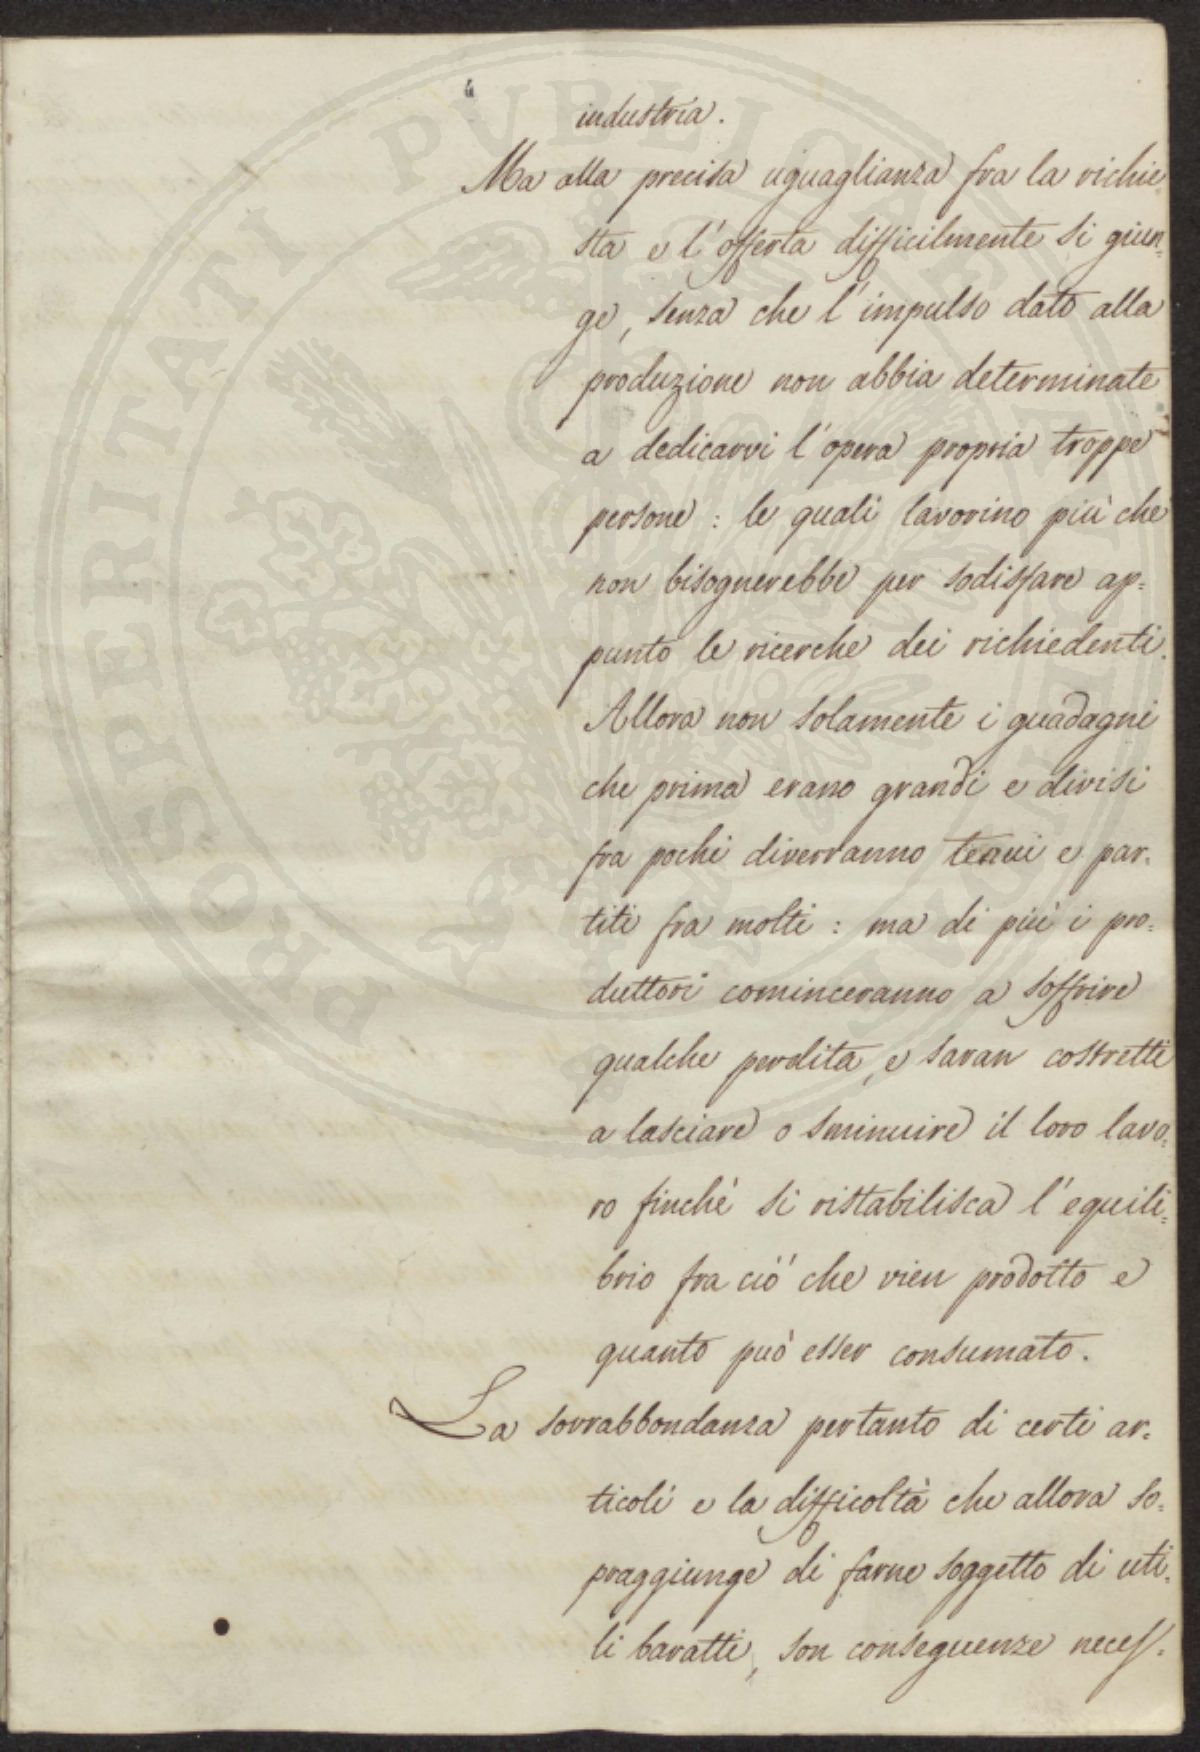 4
industria.
Ma alla precisa uguaglianza fra la richie
sta e l'offerta difficilmente si giun=
ge, senza che l'impulso dato alla
produzione non abbia determinate
a dedicarvi l'opera propria troppe
persone: le quali lavorino più che
non bisognerebbe per sodisfare ap=
punto le ricerche dei richiedenti.
Allora non solamente i guadagni
che prima erano grandi e divisi
fra pochi diverranno tenui e par=
titi fra molti: ma di più i pro=
duttori cominceranno a soffrire
qualche perdita, e saran costretti
a lasciare o sminuire il loro lavo=
ro finchè si ristabilisca l'equili=
brio fra ciò che vien prodotto e
quanto può esser consumato.
La sovrabbondanza pertanto di certi ar=
ticoli e la difficoltà che allora so=
praggiunge di farne soggetto di uti=
li baratti, son conseguenze neces=
PROSPERITATI PUBLICAE AUGENDAE